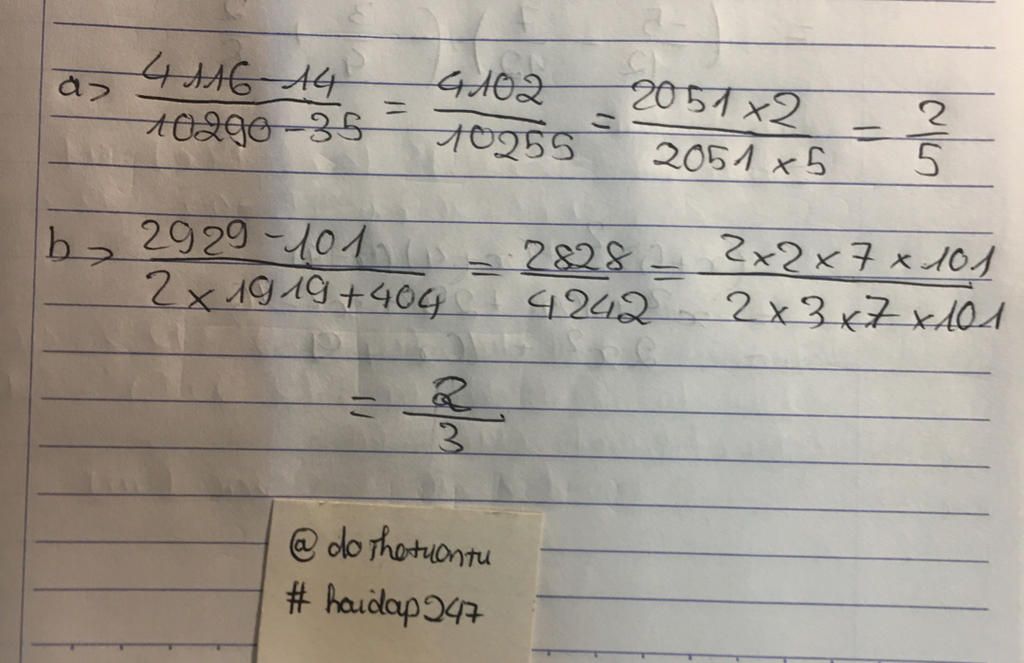 a> 4116-14 / 10290-35 = 4102 / 10255 = 2051 x 2 / 2051 x 5 = 2 / 5
b> 2929-101 / 2 x 1919 + 404 = 2828 / 4242 = 2 x 2 x 7 x 101 / 2 x 3 x 7 x 101
= 2 / 3
@ dothetuontu
# hoidap247